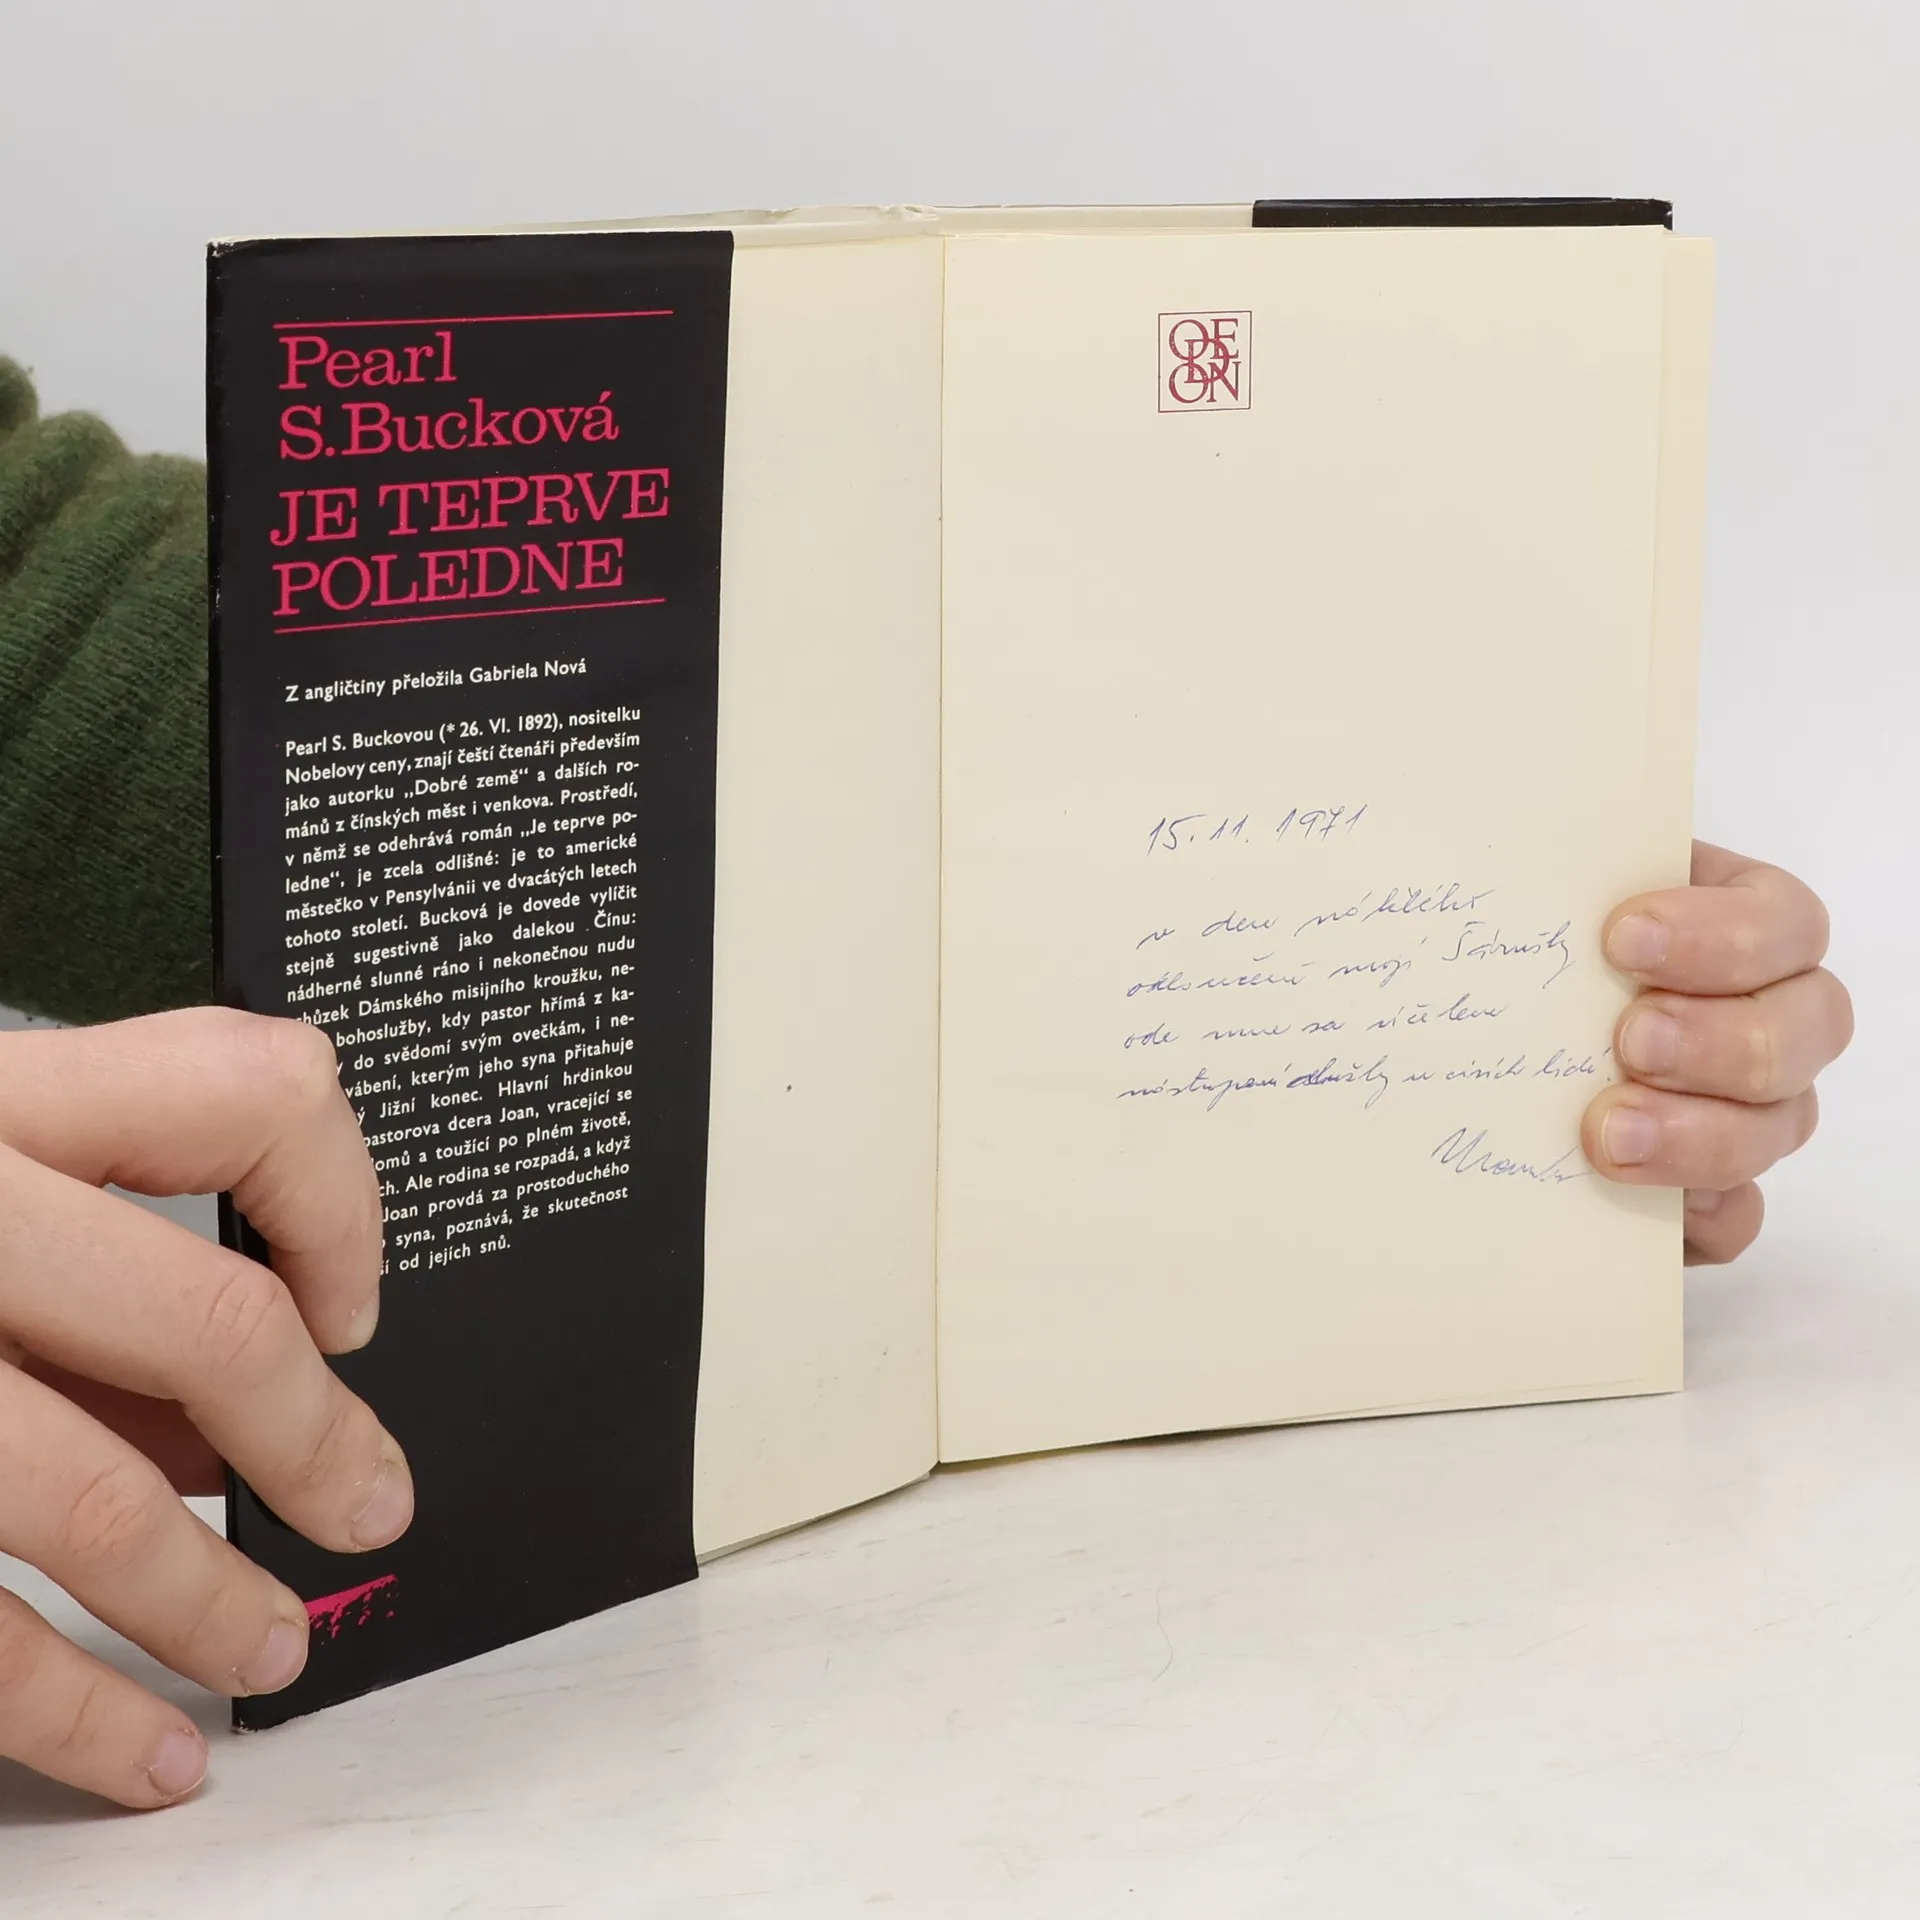 Pearl
S. Bucková
JE TEPRVE
POLEDNE
Z angličtiny přeložila Gabriela Nová
Pearl S. Buckovou (* 26. VI. 1892), nositelku
Nobelovy ceny, znají čeští čtenáři především
jako autorku „Dobré země“ a dalších ro-
mánů z čínských měst i venkova. Prostředí,
v němž se odehrává román „Je teprve po-
ledne“, je zcela odlišné: je to americké
městečko v Pensylvánii ve dvacátých letech
tohoto století. Bucková je dovede vylíčit
stejně sugestivně jako dalekou Čínu:
nádherné slunné ráno i nekonečnou nudu
chůzek Dámského misijního kroužku, ne-
bohoslužby, kdy pastor hřímá z ka-
y do svědomí svým ovečkám, i ne-
vábení, kterým jeho syna přitahuje
ý Jižní konec. Hlavní hrdinkou
pastorova dcera Joan, vracející se
domů a toužící po plném životě,
ch. Ale rodina se rozpadá, a když
Joan provdá za prostoduchého
o syna, poznává, že skutečnost
ší od jejích snů.
ODEON
15. 11. 1971
v den náhlého
odloučení mojí Šárušky
ode mne za
nástupem služby u cizích lidí.